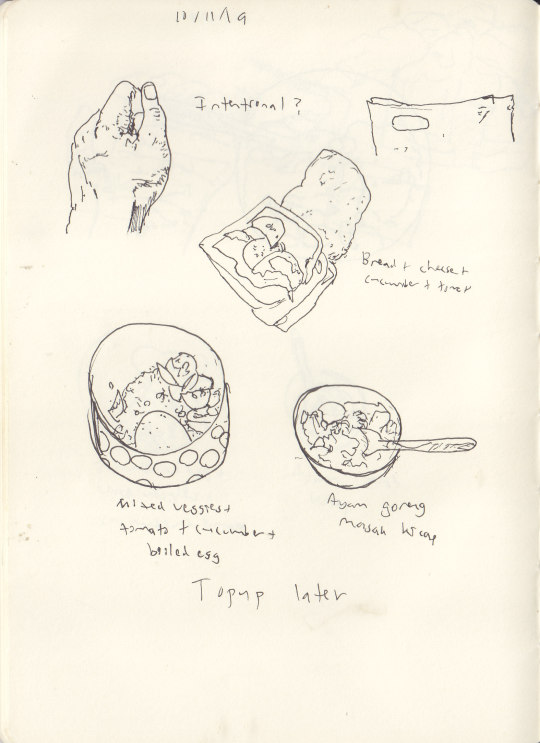 10/11/19
Intentional?
Bread + cheese +
cucumber + tomat
Mixed veggies +
tomato + cucumber +
boiled egg
Ayam goreng
masak kicap
Topup later